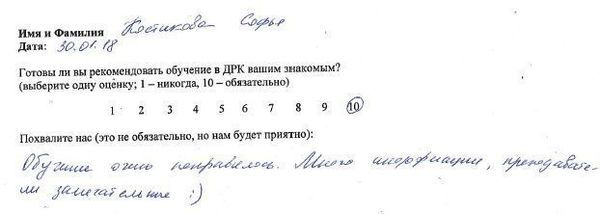 Имя и Фамилия Костикова Софья
Дата: 30.01.18
Готовы ли вы рекомендовать обучение в ДРК вашим знакомым?
(выберите одну оценку; 1 – никогда, 10 – обязательно)
1 2 3 4 5 6 7 8 9 10
Похвалите нас (это не обязательно, но нам будет приятно):
Обучение очень понравилось. Много информации, преподавате-
ли замечательные :)